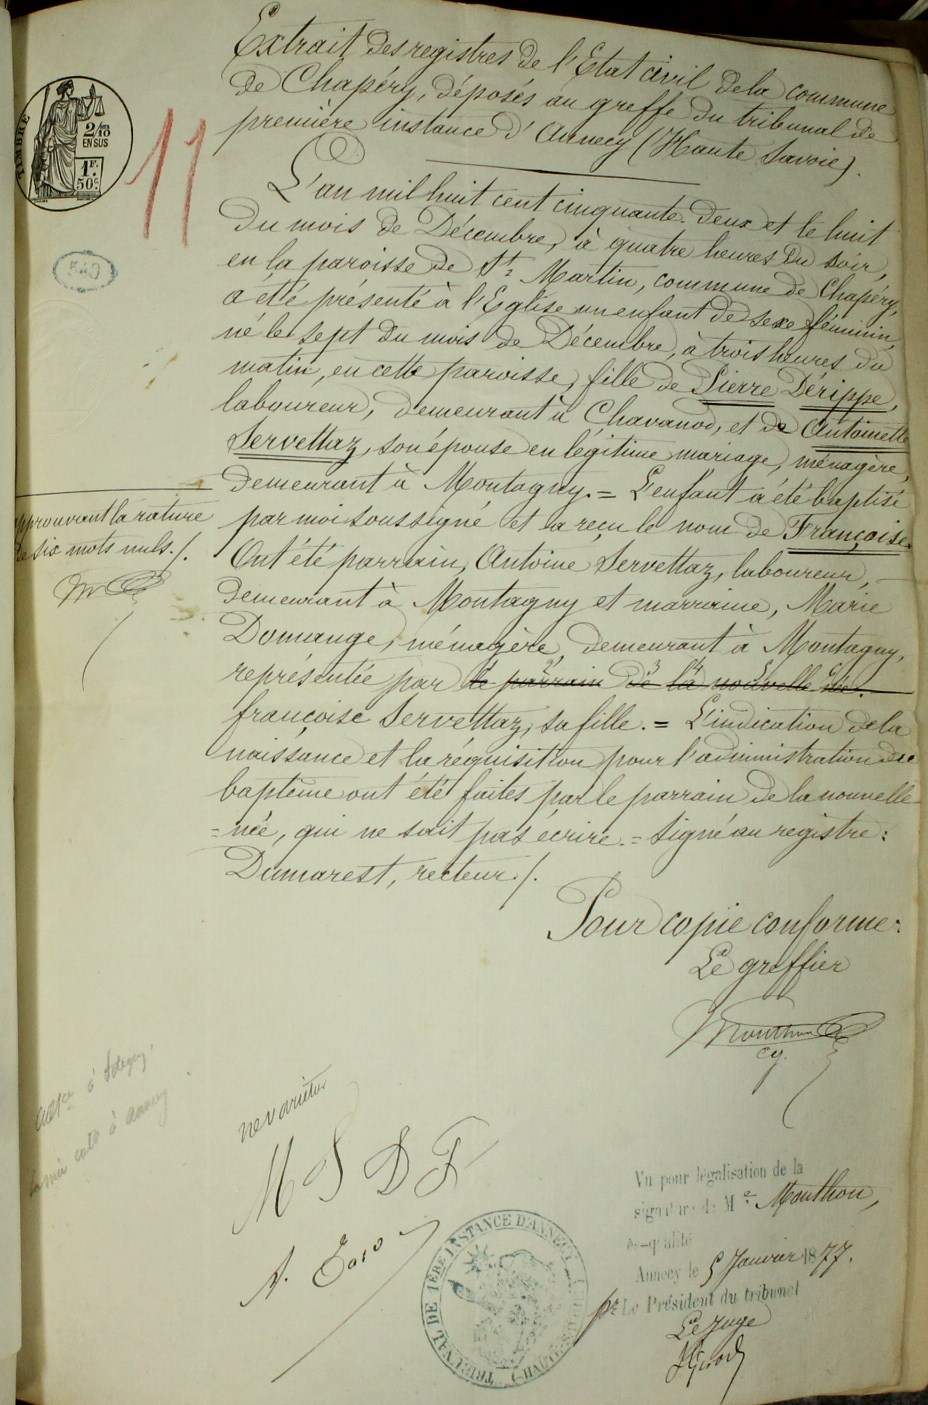 Extrait des registres de l'Etat civil de la commune
de Chapéry, déposés au greffe du tribunal de
première instance d'Annecy (Haute Savoie).
TIMBRE
2/10
EN SUS
1F.
50c.
11
540
L'an mil huit cent cinquante-deux et le huit
du mois de Décembre, à quatre heures du soir,
en la paroisse de St Martin, commune de Chapéry,
a été présenté à l'Eglise un enfant de sexe féminin,
né le sept du mois de Décembre, à trois heures du
matin, en cette paroisse, fille de Pierre Dérippe,
laboureur, demeurant à Chavanod, et de Antoinette
Servettaz, son épouse en légitime mariage, ménagère,
demeurant à Montagny. = L'enfant a été baptisé
par moi soussigné et a reçu le nom de Françoise.
Ont été parrain, Antoine Servettaz, laboureur,
demeurant à Montagny et marraine, Marie
Domange, ménagère, demeurant à Montagny,
représentée par le parrain de la nouvelle née.
françoise Servettaz, sa fille. = L'indication de la
naissance et la réquisition pour l'administration du
baptême ont été faites par le parrain de la nouvelle
=née, qui ne sait pas écrire. = Signé au registre:
Dumarest, recteur ./.
approuvant la rature
de six mots nuls ./.
Pour copie conforme:
Le greffier
Mouthon
cg.
ne varietur
M S D F
A.
Vu pour légalisation de la
signature de Me Mouthon,
ès-qualité
Annecy le 5 Janvier 1877.
pr Le Président du tribunal
Le Juge
TRIBUNAL DE 1ÈRE INSTANCE D'ANNECY (HAUTE-SAVOIE)